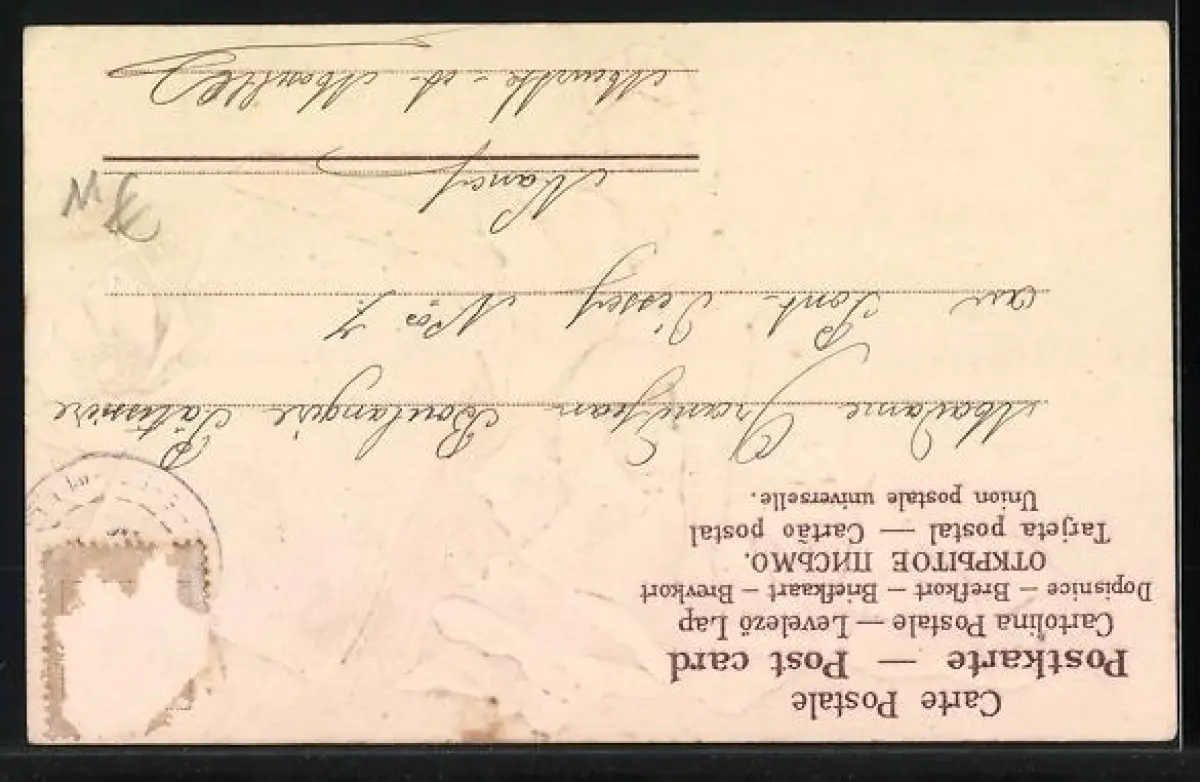 Carte Postale
Postkarte — Post card
Cartolina Postale — Levelező Lap
Dopisnice — Brefkort — Briefkaart — Brevkort
ОТКРЫТОЕ ПИСЬМО.
Tarjeta postal — Cartão postal
Union postale universelle.
Madame Grandjean Boulangère Pâtissière
au Pont d'Essey Nos 7.
Nancy
Meurthe-et-Moselle